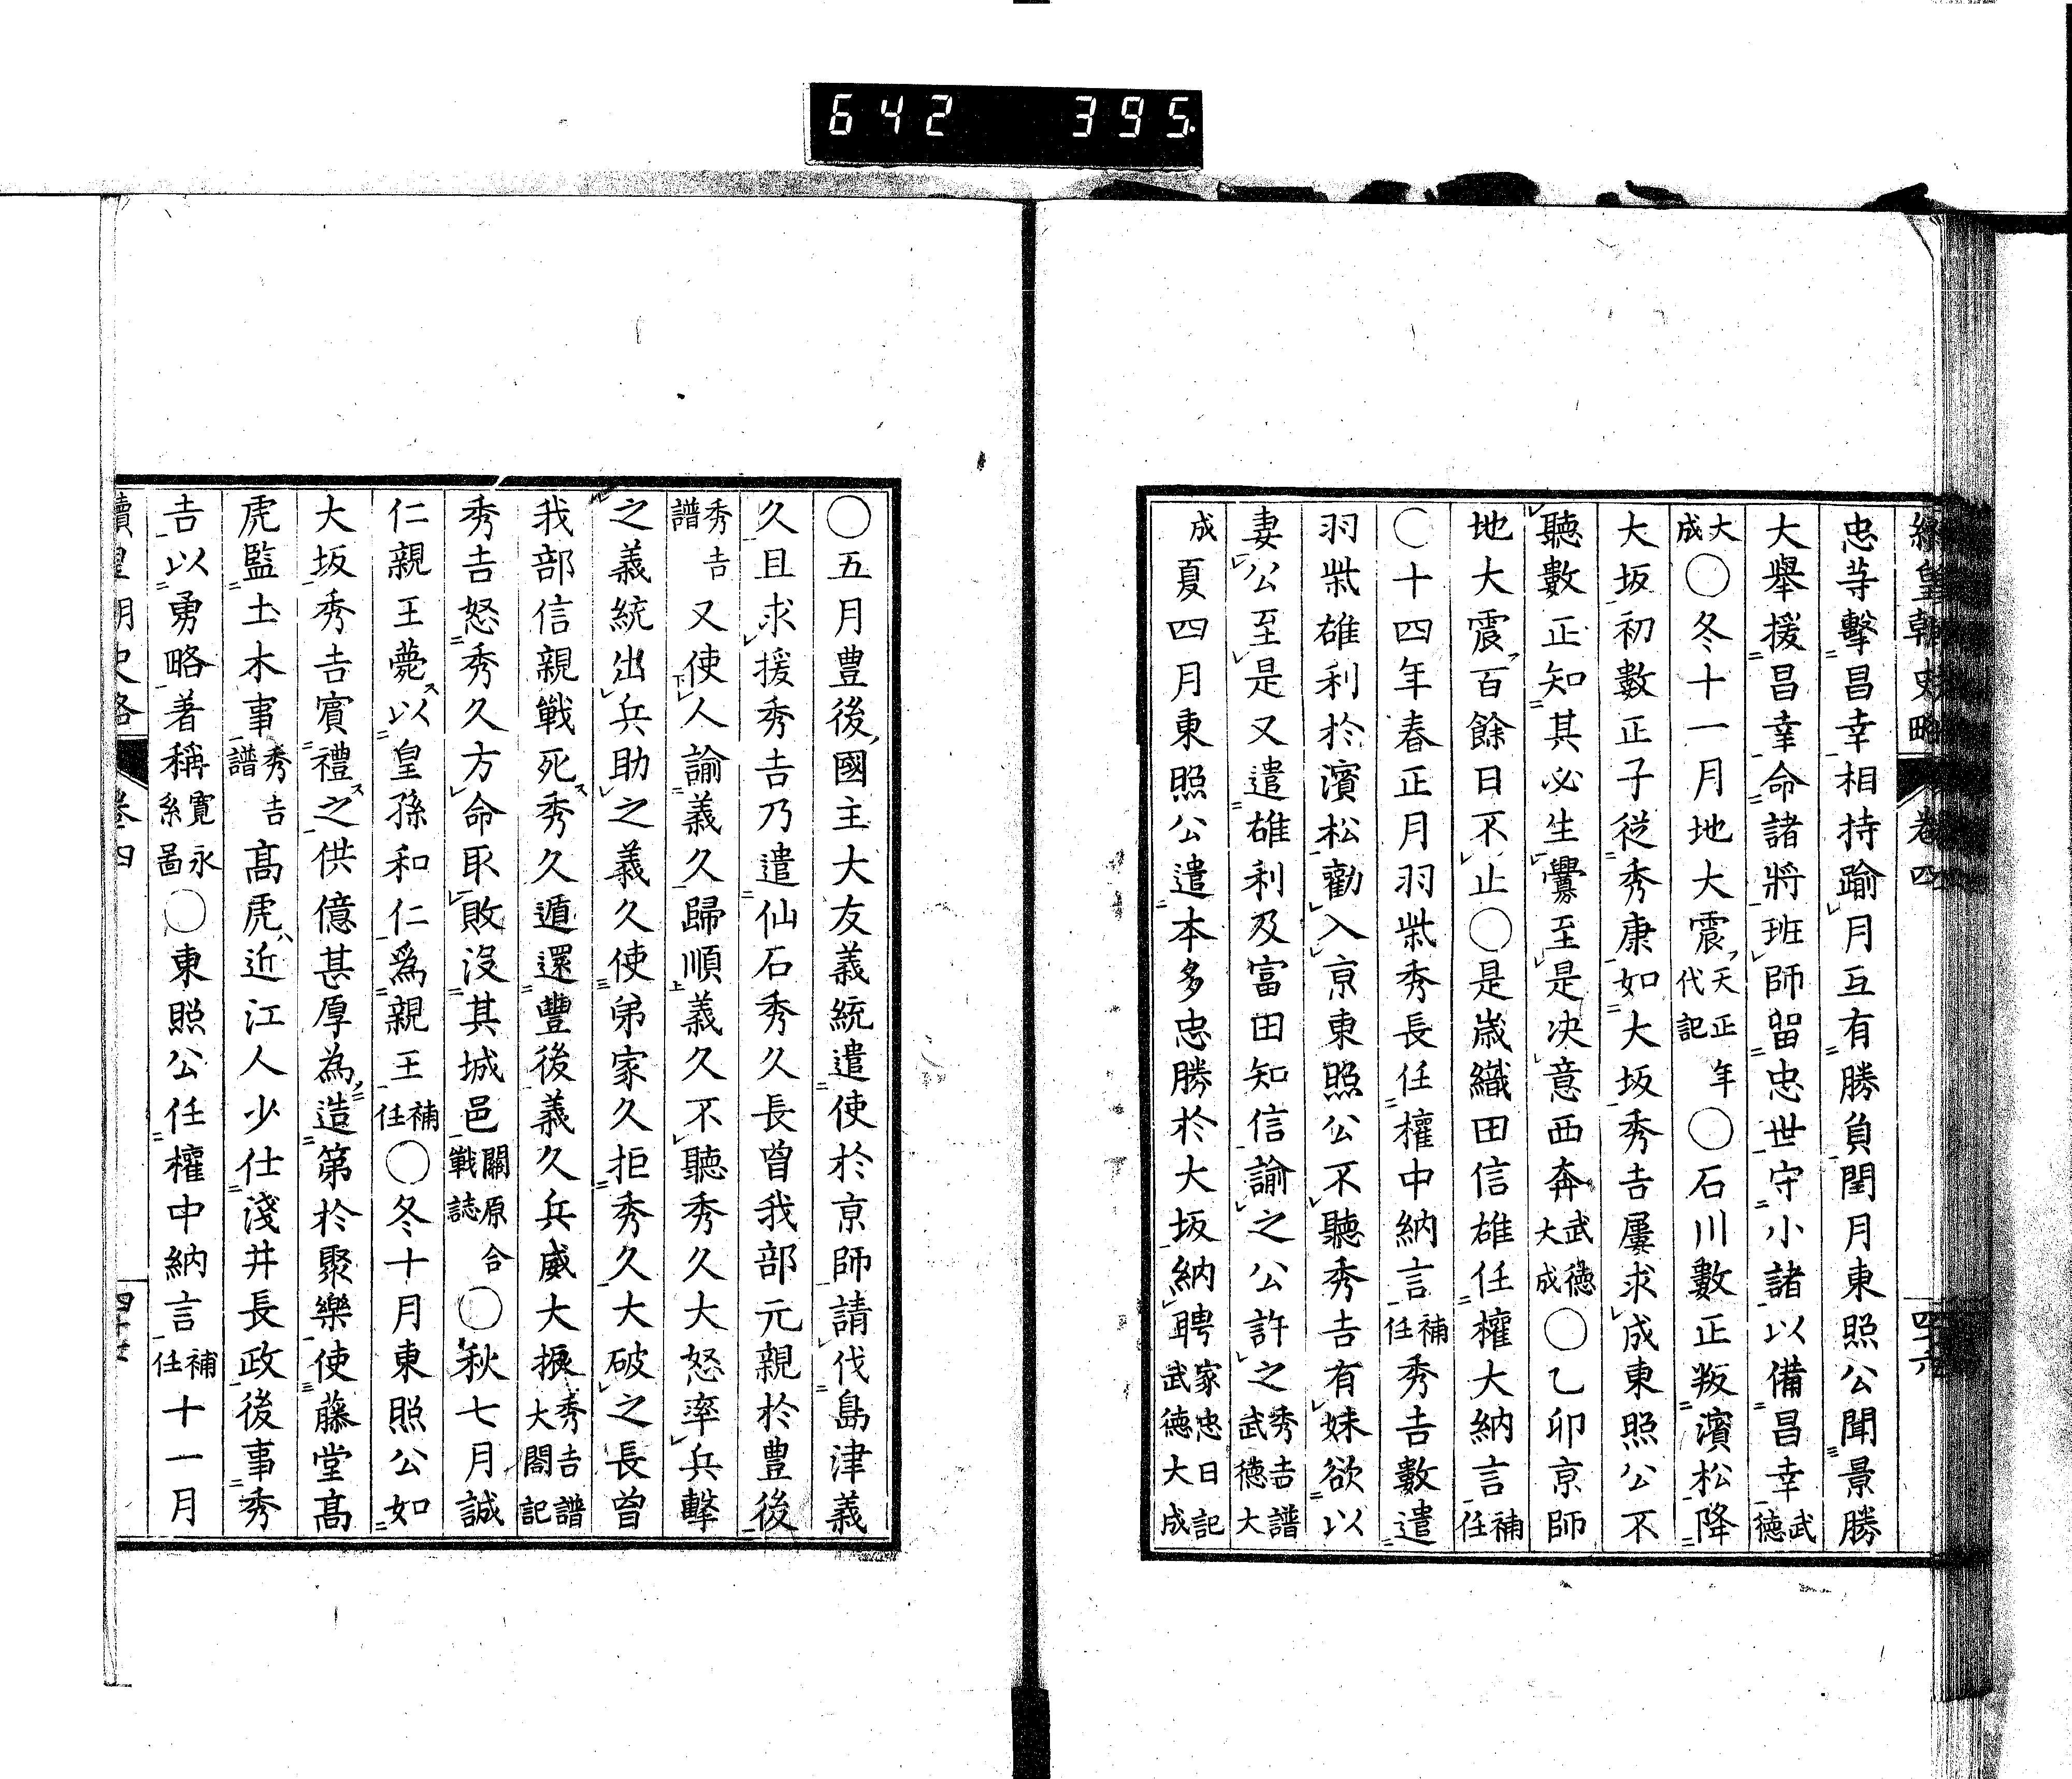 642 395
續皇朝史略 卷四 四十六
忠等擊昌幸相持踰月互有勝負閏月東照公聞景勝
大舉援昌幸命諸將班師留忠世守小諸以備昌幸武德
大成○冬十一月地大震天正年代記○石川數正叛濱松降
大坂初數正子從秀康如大坂秀吉屢求成東照公不
聽數正知其必生釁至是决意西奔武德大成○乙卯京師
地大震百餘日不止○是歲織田信雄任權大納言補任
○十四年春正月羽柴秀長任權中納言補任秀吉數遣
羽柴雄利於濱松勸入京東照公不聽秀吉有妹欲以
妻公至是又遣雄利及富田知信諭之公許之秀吉譜武德大
成夏四月東照公遣本多忠勝於大坂納聘家忠日記武德大成
○五月豊後國主大友義統遣使於京師請伐島津義
久且求援秀吉乃遣仙石秀久長曾我部元親於豊後
秀吉譜又使人諭義久歸順義久不聽秀久大怒率兵擊
之義統出兵助之義久使弟家久拒秀久大破之長曾
我部信親戰死秀久遁還豐後義久兵威大振秀吉譜大閤記
秀吉怒秀久方命取敗沒其城邑關原合戰誌○秋七月誠
仁親王薨以皇孫和仁爲親王補任○冬十月東照公如
大坂秀吉賓禮之供億甚厚為造第於聚樂使藤堂高
虎監土木事秀吉譜高虎近江人少仕淺井長政後事秀
吉以勇略著稱寛永系圖○東照公任權中納言補任十一月
續皇朝史略 卷四